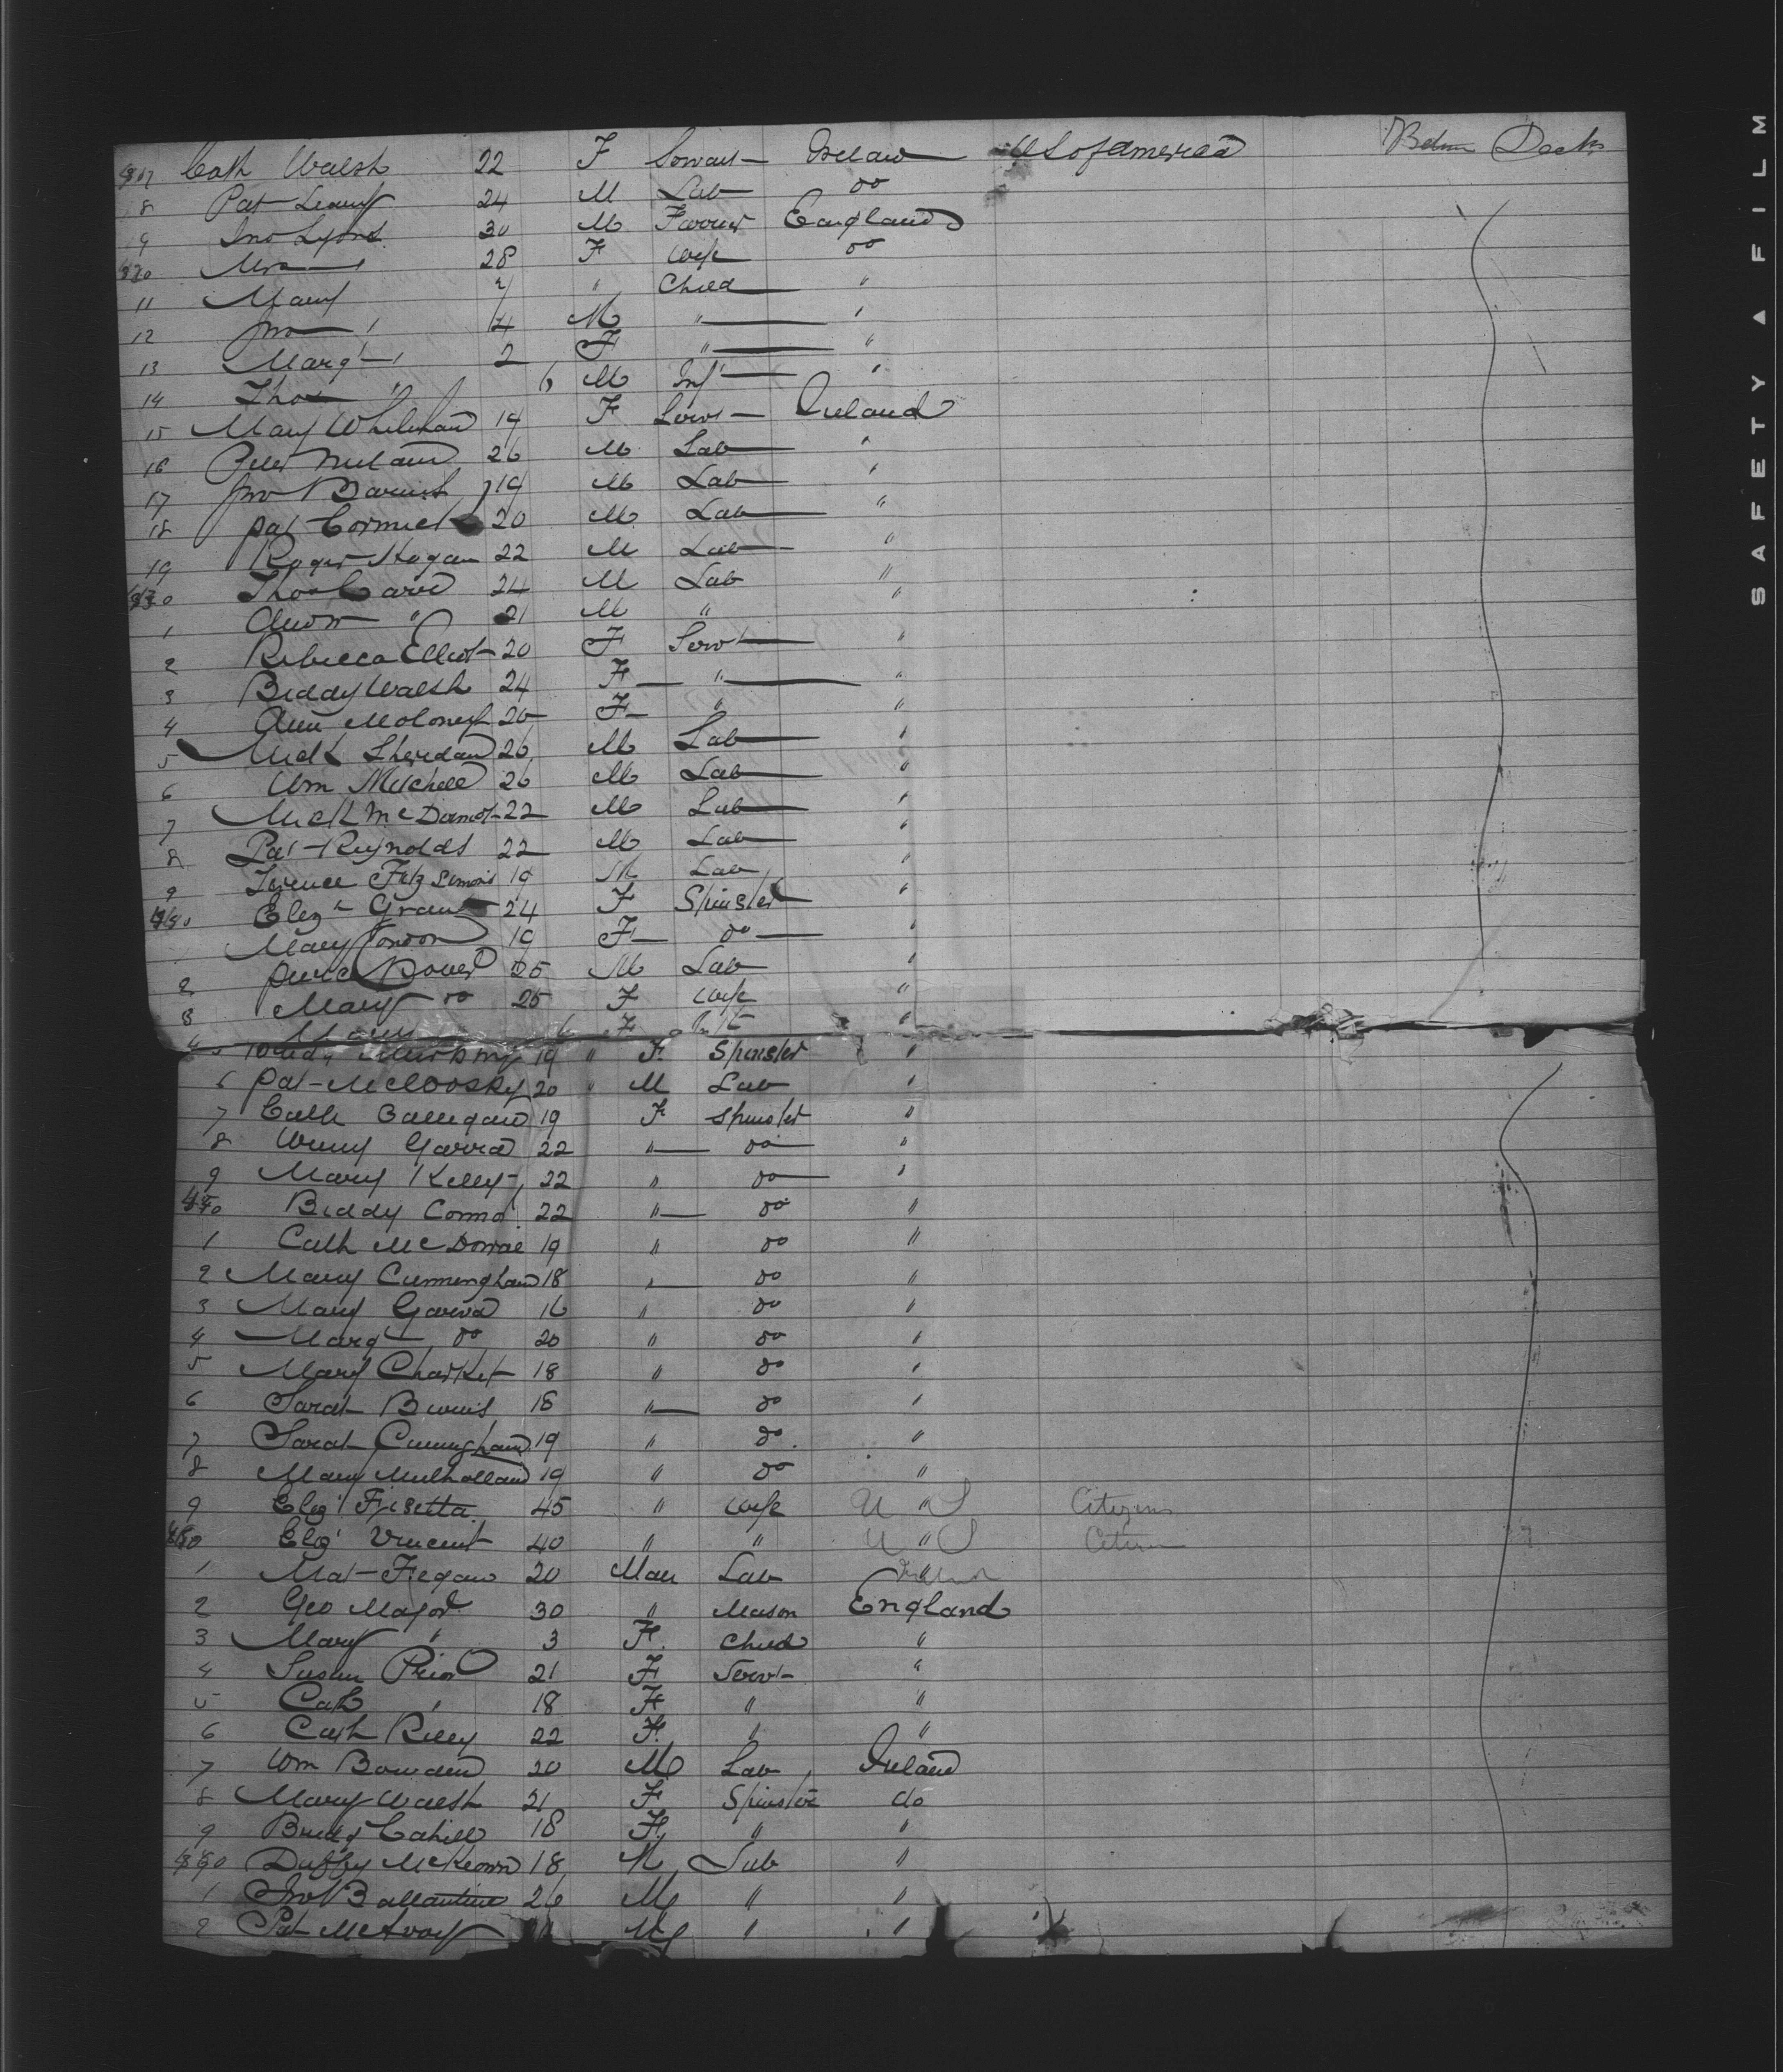 Cath Walsh 22 F Servant Ireland U S of America Betwn Decks
8 Pat Leany 24 M Lab do
9 Jno Lyons 30 M Farrier England
Mrs " 28 F Wife do
11 Mary " Child "
12 Jno " 4 M " "
13 Margt " 2 F " "
14 Thos " 6 M Inft "
15 Mary Whelehan 19 F Servt Ireland
16 Peter 26 M Lab "
17 Jno 19 M Lab "
18 Pat Cormick 20 M Lab "
19 Roger Hogan 22 M Lab "
Thos Carr 24 M Lab "
1 Andw " 21 M " "
2 Rebecca Elliot 20 F Servt "
3 Biddy Walsh 24 F " "
4 Ann Moloney 20 F " "
5 Mick Sheridan 26 M Lab "
6 Wm Mitchell 26 M Lab "
7 Mick McDermot 22 M Lab "
8 Pat Reynolds 22 M Lab "
9 Terence Fitzsimons 19 M Lab "
Elezth Grant 24 F Spinster "
Mary Condon 19 F do "
2 Power 25 M Lab "
3 Mary do 25 F Wife "
4 F Inft "
19 " F Spinster "
6 Pat McCloosky 20 " M Lab "
7 Cath Galligan 19 F Spinster "
8 Winny 22 " do "
9 Mary Kelly 22 " do "
Biddy Connor 22 " do "
1 Cath McDonnal 19 " do "
2 Mary Cunningham 18 " do "
3 Mary Garva 16 " do "
4 Margt do 20 " do "
5 Mary Charket 18 " do "
6 Sarah Burns 18 " do "
7 Sarah Cunningham 19 " do "
8 Mary Mulholland 19 " do "
9 Elezt Frisetta 45 " Wife U " S Citizens
Elezt Vincent 40 " " U " S Citizen
1 Mat Fegan 20 Male Lab Ireland
2 Geo Major 30 " Mason England
3 Mary " 3 F Child "
4 Susan Prior 21 F Servt "
5 Cath " 18 F " "
6 Cath Riley 22 F " "
7 Wm Bowden 20 M Lab Ireland
8 Mary Walsh 21 F Spinster do
9 Bridgt Cahill 18 F " "
Duffy McKeown 18 M Lab "
1 Jno Ballantine 26 M " "
2 Pat McAvoy M " "
SAFETY ▲ FILM